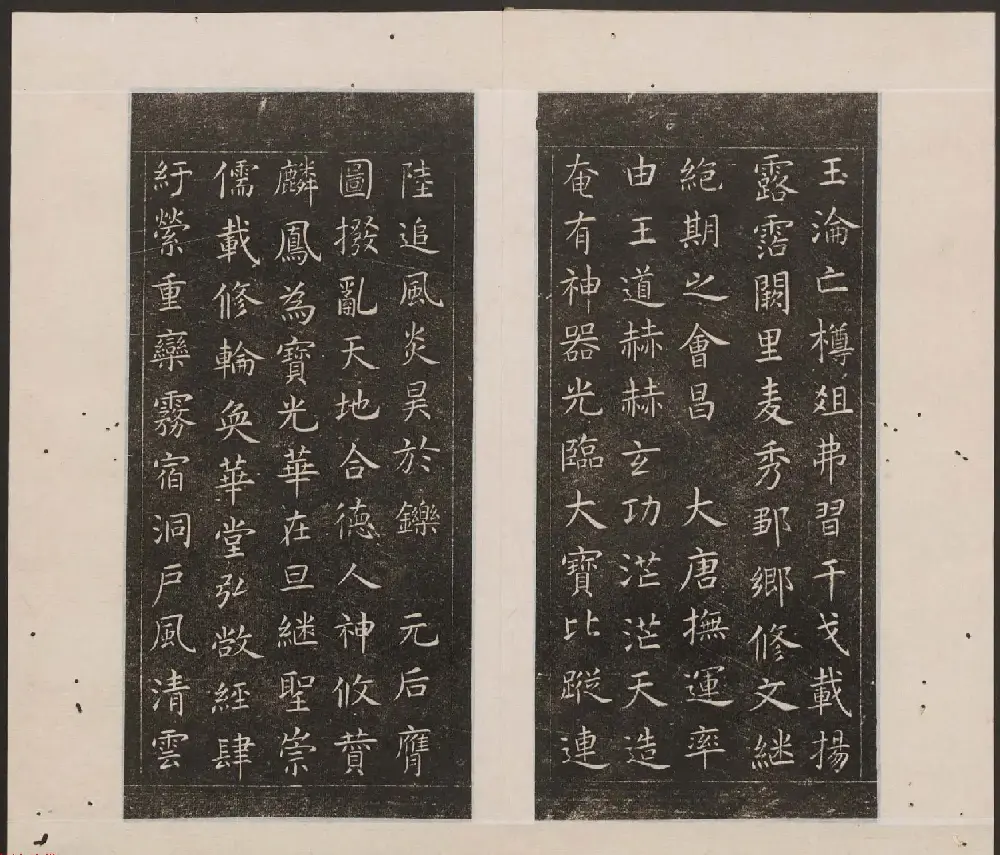 玉淪亡樽俎弗習干戈載揚
露霑闕里麦秀鄒鄉修文継
絶期之會昌 大唐撫運率
由王道赫赫玄功茫茫天造
奄有神器光臨大寶比蹤連
陸追風炎昊於鑠 元后膺
圖撥亂天地合徳人神攸賛
麟鳳為寶光華在旦継聖崇
儒載修輪奐華堂弘敞經肆
紆縈重欒霧宿洞戶風清雲